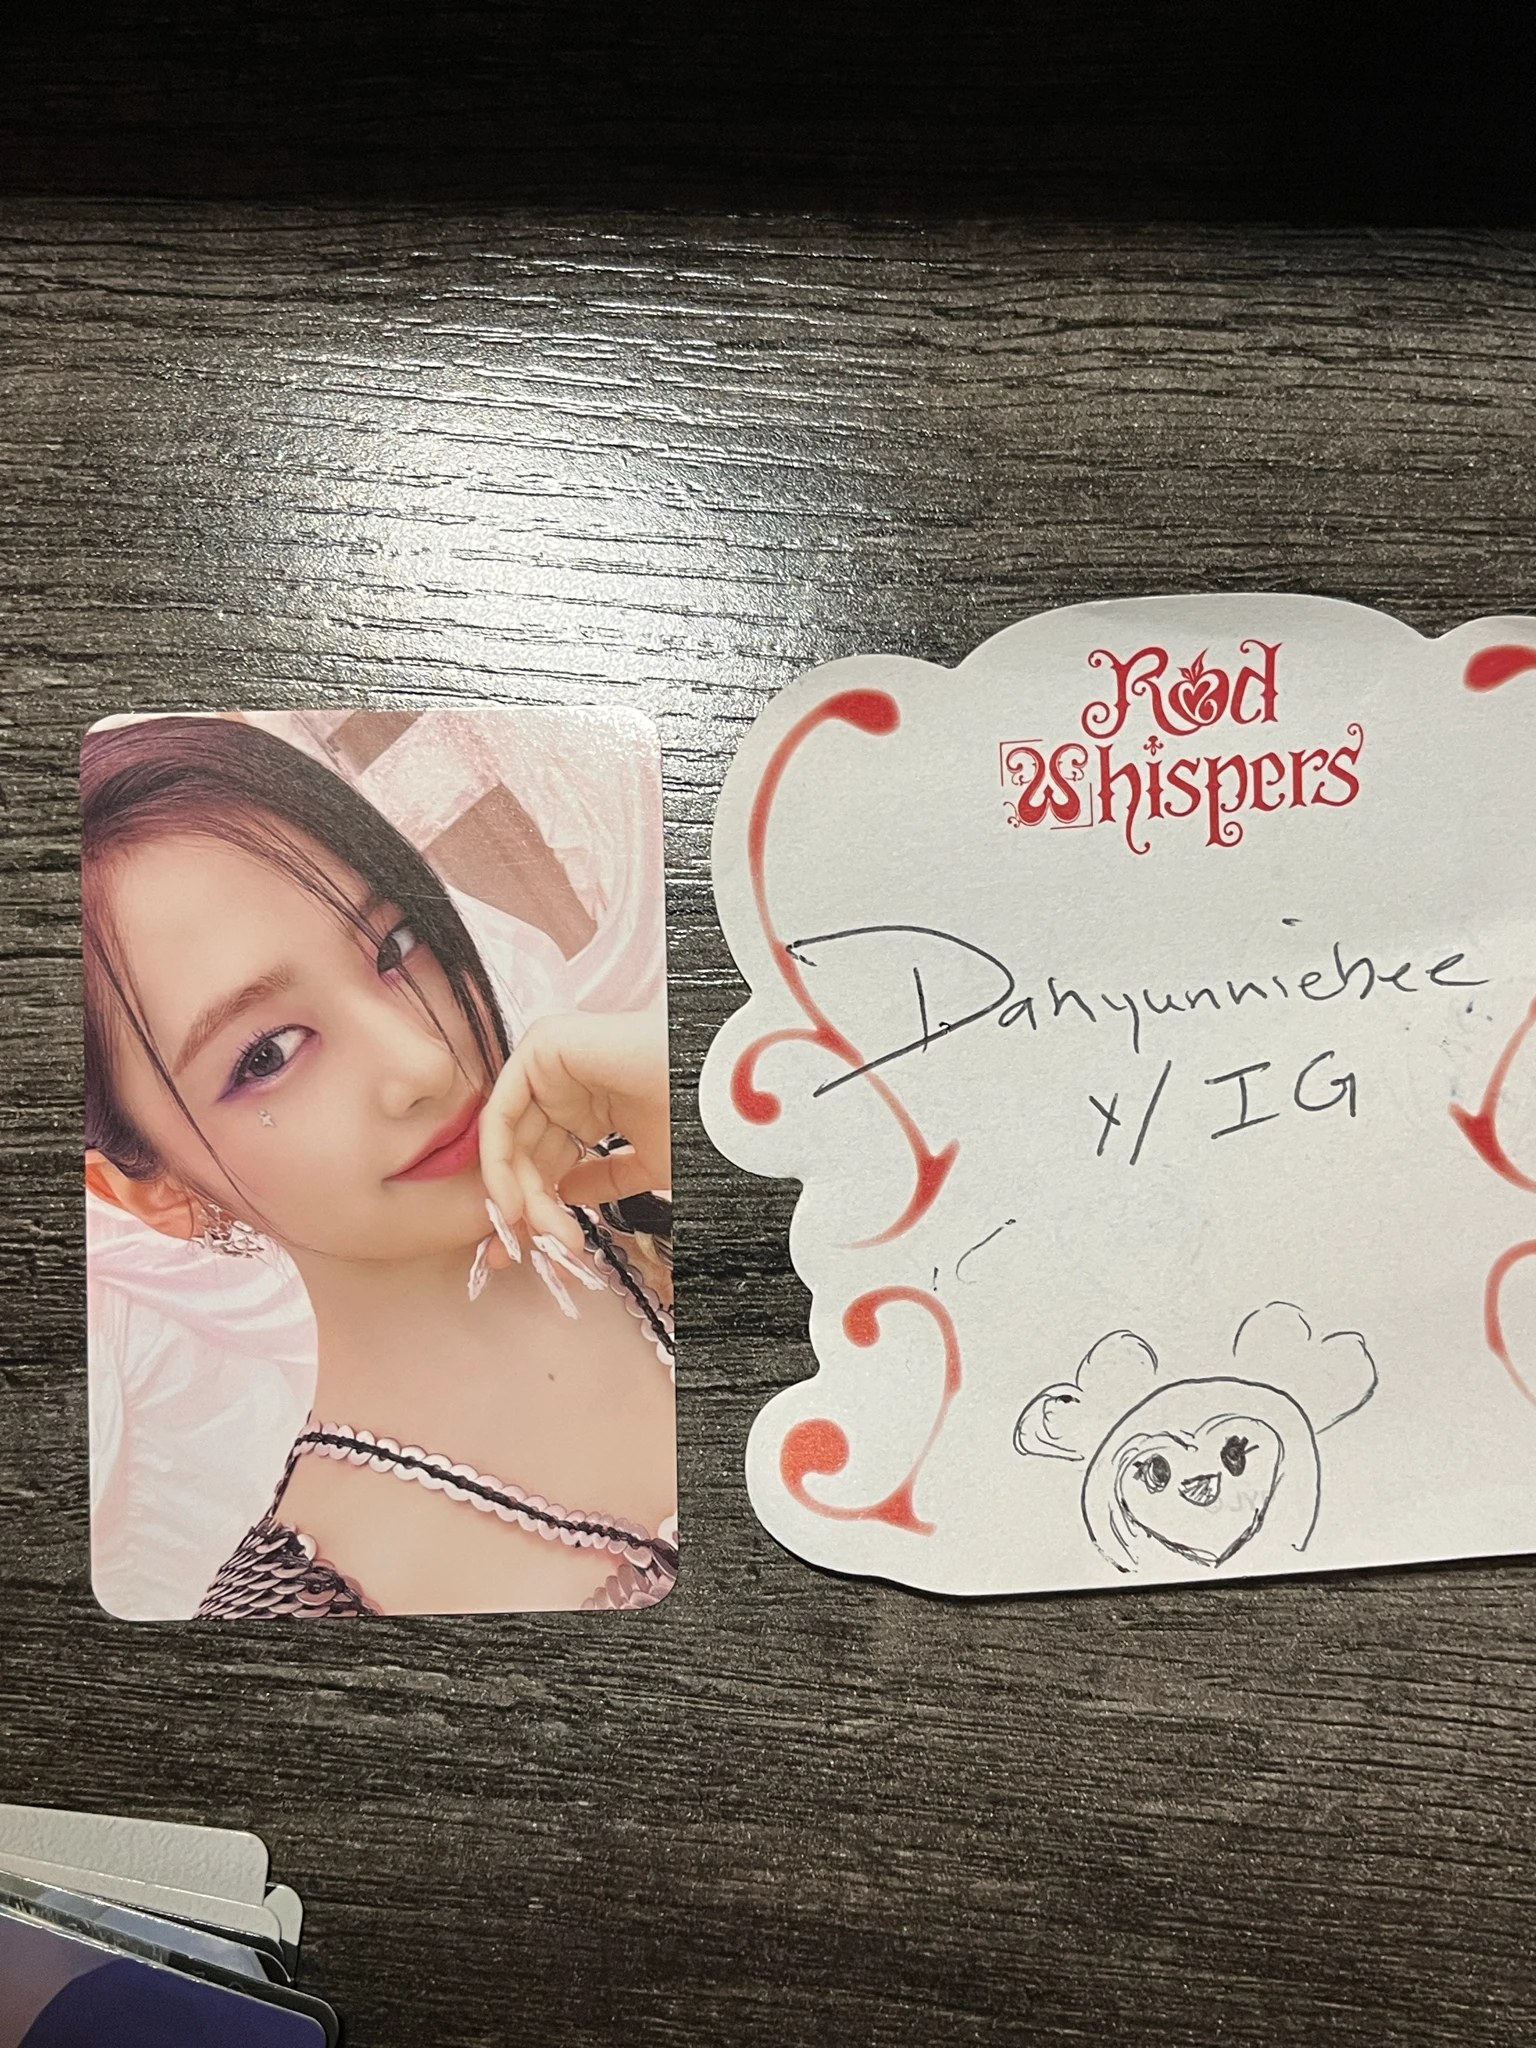 Red
Whispers
Dahyunniebee
x/ IG